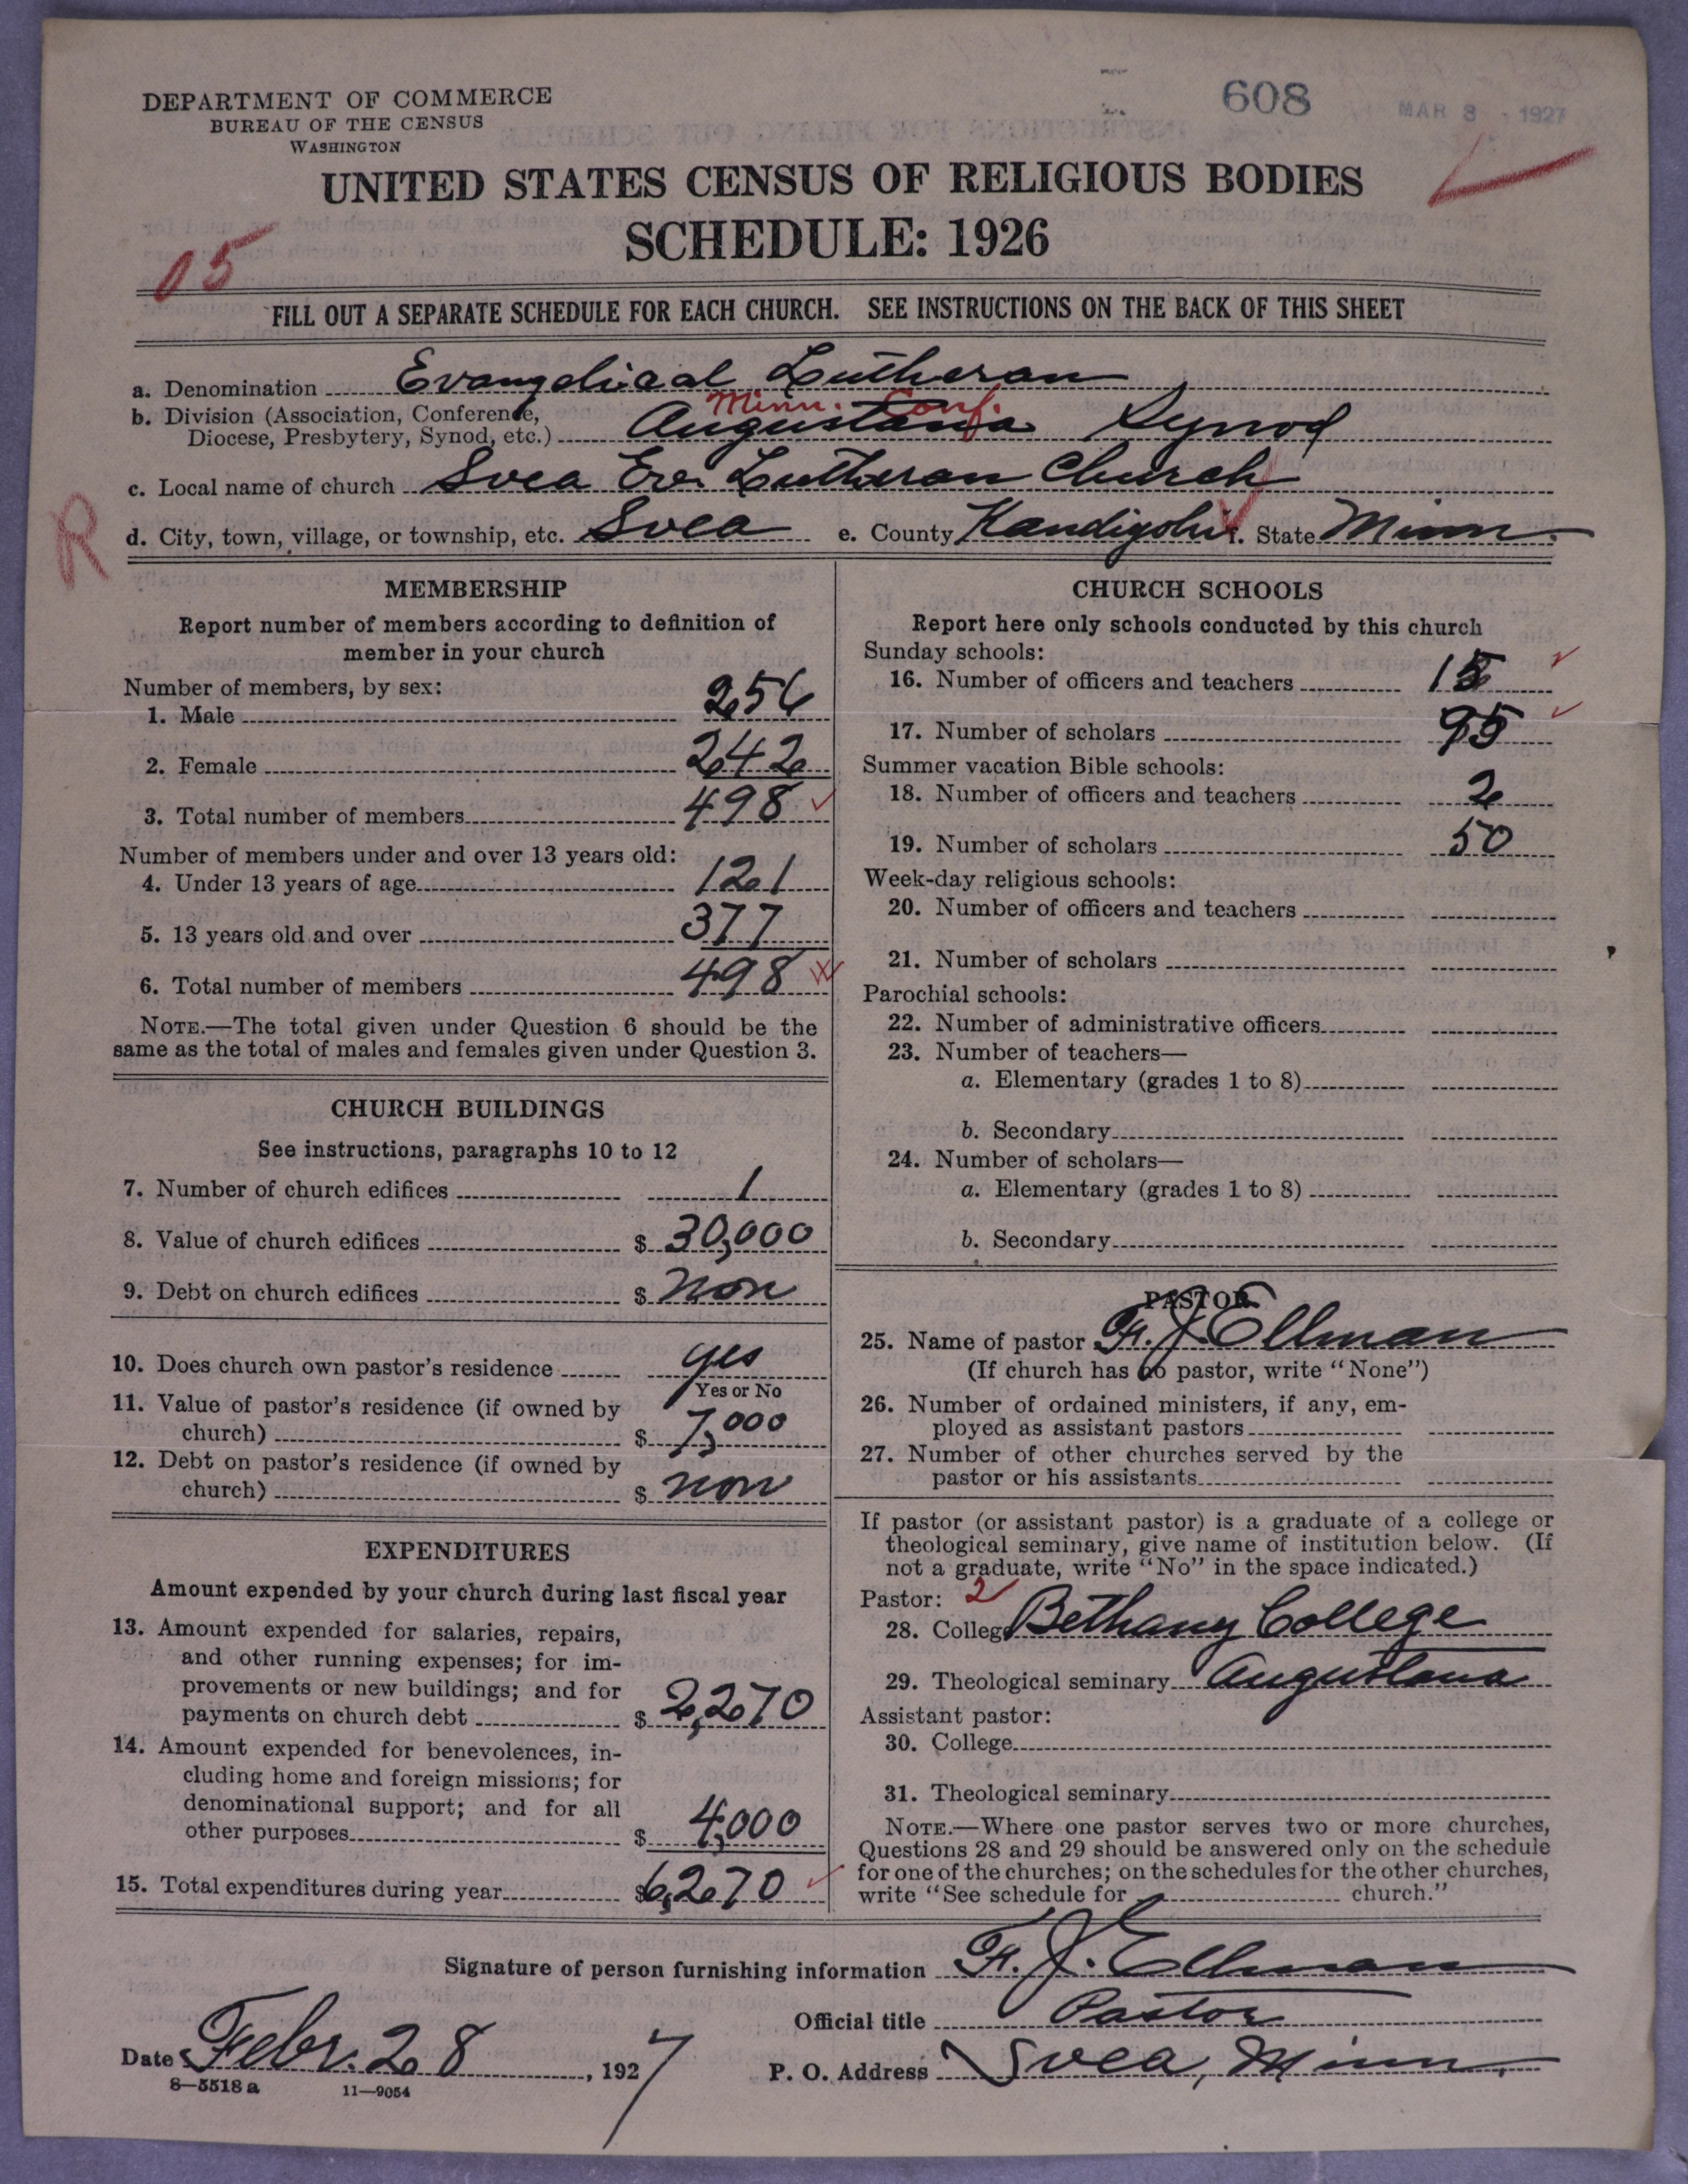 DEPARTMENT OF COMMERCE
BUREAU OF THE CENSUS
WASHINGTON
608
MAR 3 - 1927
UNITED STATES CENSUS OF RELIGIOUS BODIES
SCHEDULE: 1926
05
FILL OUT A SEPARATE SCHEDULE FOR EACH CHURCH. SEE INSTRUCTIONS ON THE BACK OF THIS SHEET
a. Denomination Evangelical Lutheran
b. Division (Association, Conference, Minn. Conf.
Diocese, Presbytery, Synod, etc.) Augustana Synod
c. Local name of church Svea Ev. Lutheran Church
R
d. City, town, village, or township, etc. Svea e. County Kandiyohi f. State Minn.
MEMBERSHIP
Report number of members according to definition of
member in your church
Number of members, by sex:
1. Male 256
2. Female 242
3. Total number of members 498
Number of members under and over 13 years old:
4. Under 13 years of age 121
5. 13 years old and over 377
6. Total number of members 498
NOTE.—The total given under Question 6 should be the
same as the total of males and females given under Question 3.
CHURCH BUILDINGS
See instructions, paragraphs 10 to 12
7. Number of church edifices 1
8. Value of church edifices $ 30,000
9. Debt on church edifices $ non
10. Does church own pastor's residence yes
Yes or No
11. Value of pastor's residence (if owned by
church) $ 7,000
12. Debt on pastor's residence (if owned by
church) $ non
EXPENDITURES
Amount expended by your church during last fiscal year
13. Amount expended for salaries, repairs,
and other running expenses; for im-
provements or new buildings; and for
payments on church debt $ 2,270
14. Amount expended for benevolences, in-
cluding home and foreign missions; for
denominational support; and for all
other purposes $ 4,000
15. Total expenditures during year $ 6,270
CHURCH SCHOOLS
Report here only schools conducted by this church
Sunday schools:
16. Number of officers and teachers 15
17. Number of scholars 95
Summer vacation Bible schools:
18. Number of officers and teachers 2
19. Number of scholars 50
Week-day religious schools:
20. Number of officers and teachers
21. Number of scholars
Parochial schools:
22. Number of administrative officers
23. Number of teachers—
a. Elementary (grades 1 to 8)
b. Secondary
24. Number of scholars—
a. Elementary (grades 1 to 8)
b. Secondary
PASTOR
25. Name of pastor Fr. J. Ellman
(If church has no pastor, write "None")
26. Number of ordained ministers, if any, em-
ployed as assistant pastors
27. Number of other churches served by the
pastor or his assistants
If pastor (or assistant pastor) is a graduate of a college or
theological seminary, give name of institution below. (If
not a graduate, write "No" in the space indicated.)
Pastor: 2
28. College Bethany College
29. Theological seminary Augustana
Assistant pastor:
30. College
31. Theological seminary
NOTE.—Where one pastor serves two or more churches,
Questions 28 and 29 should be answered only on the schedule
for one of the churches; on the schedules for the other churches,
write "See schedule for church."
Signature of person furnishing information Fr. J. Ellman
Official title Pastor
Date Febr. 28, 1927 P. O. Address Svea, Minn.
8—5518 a 11—9054